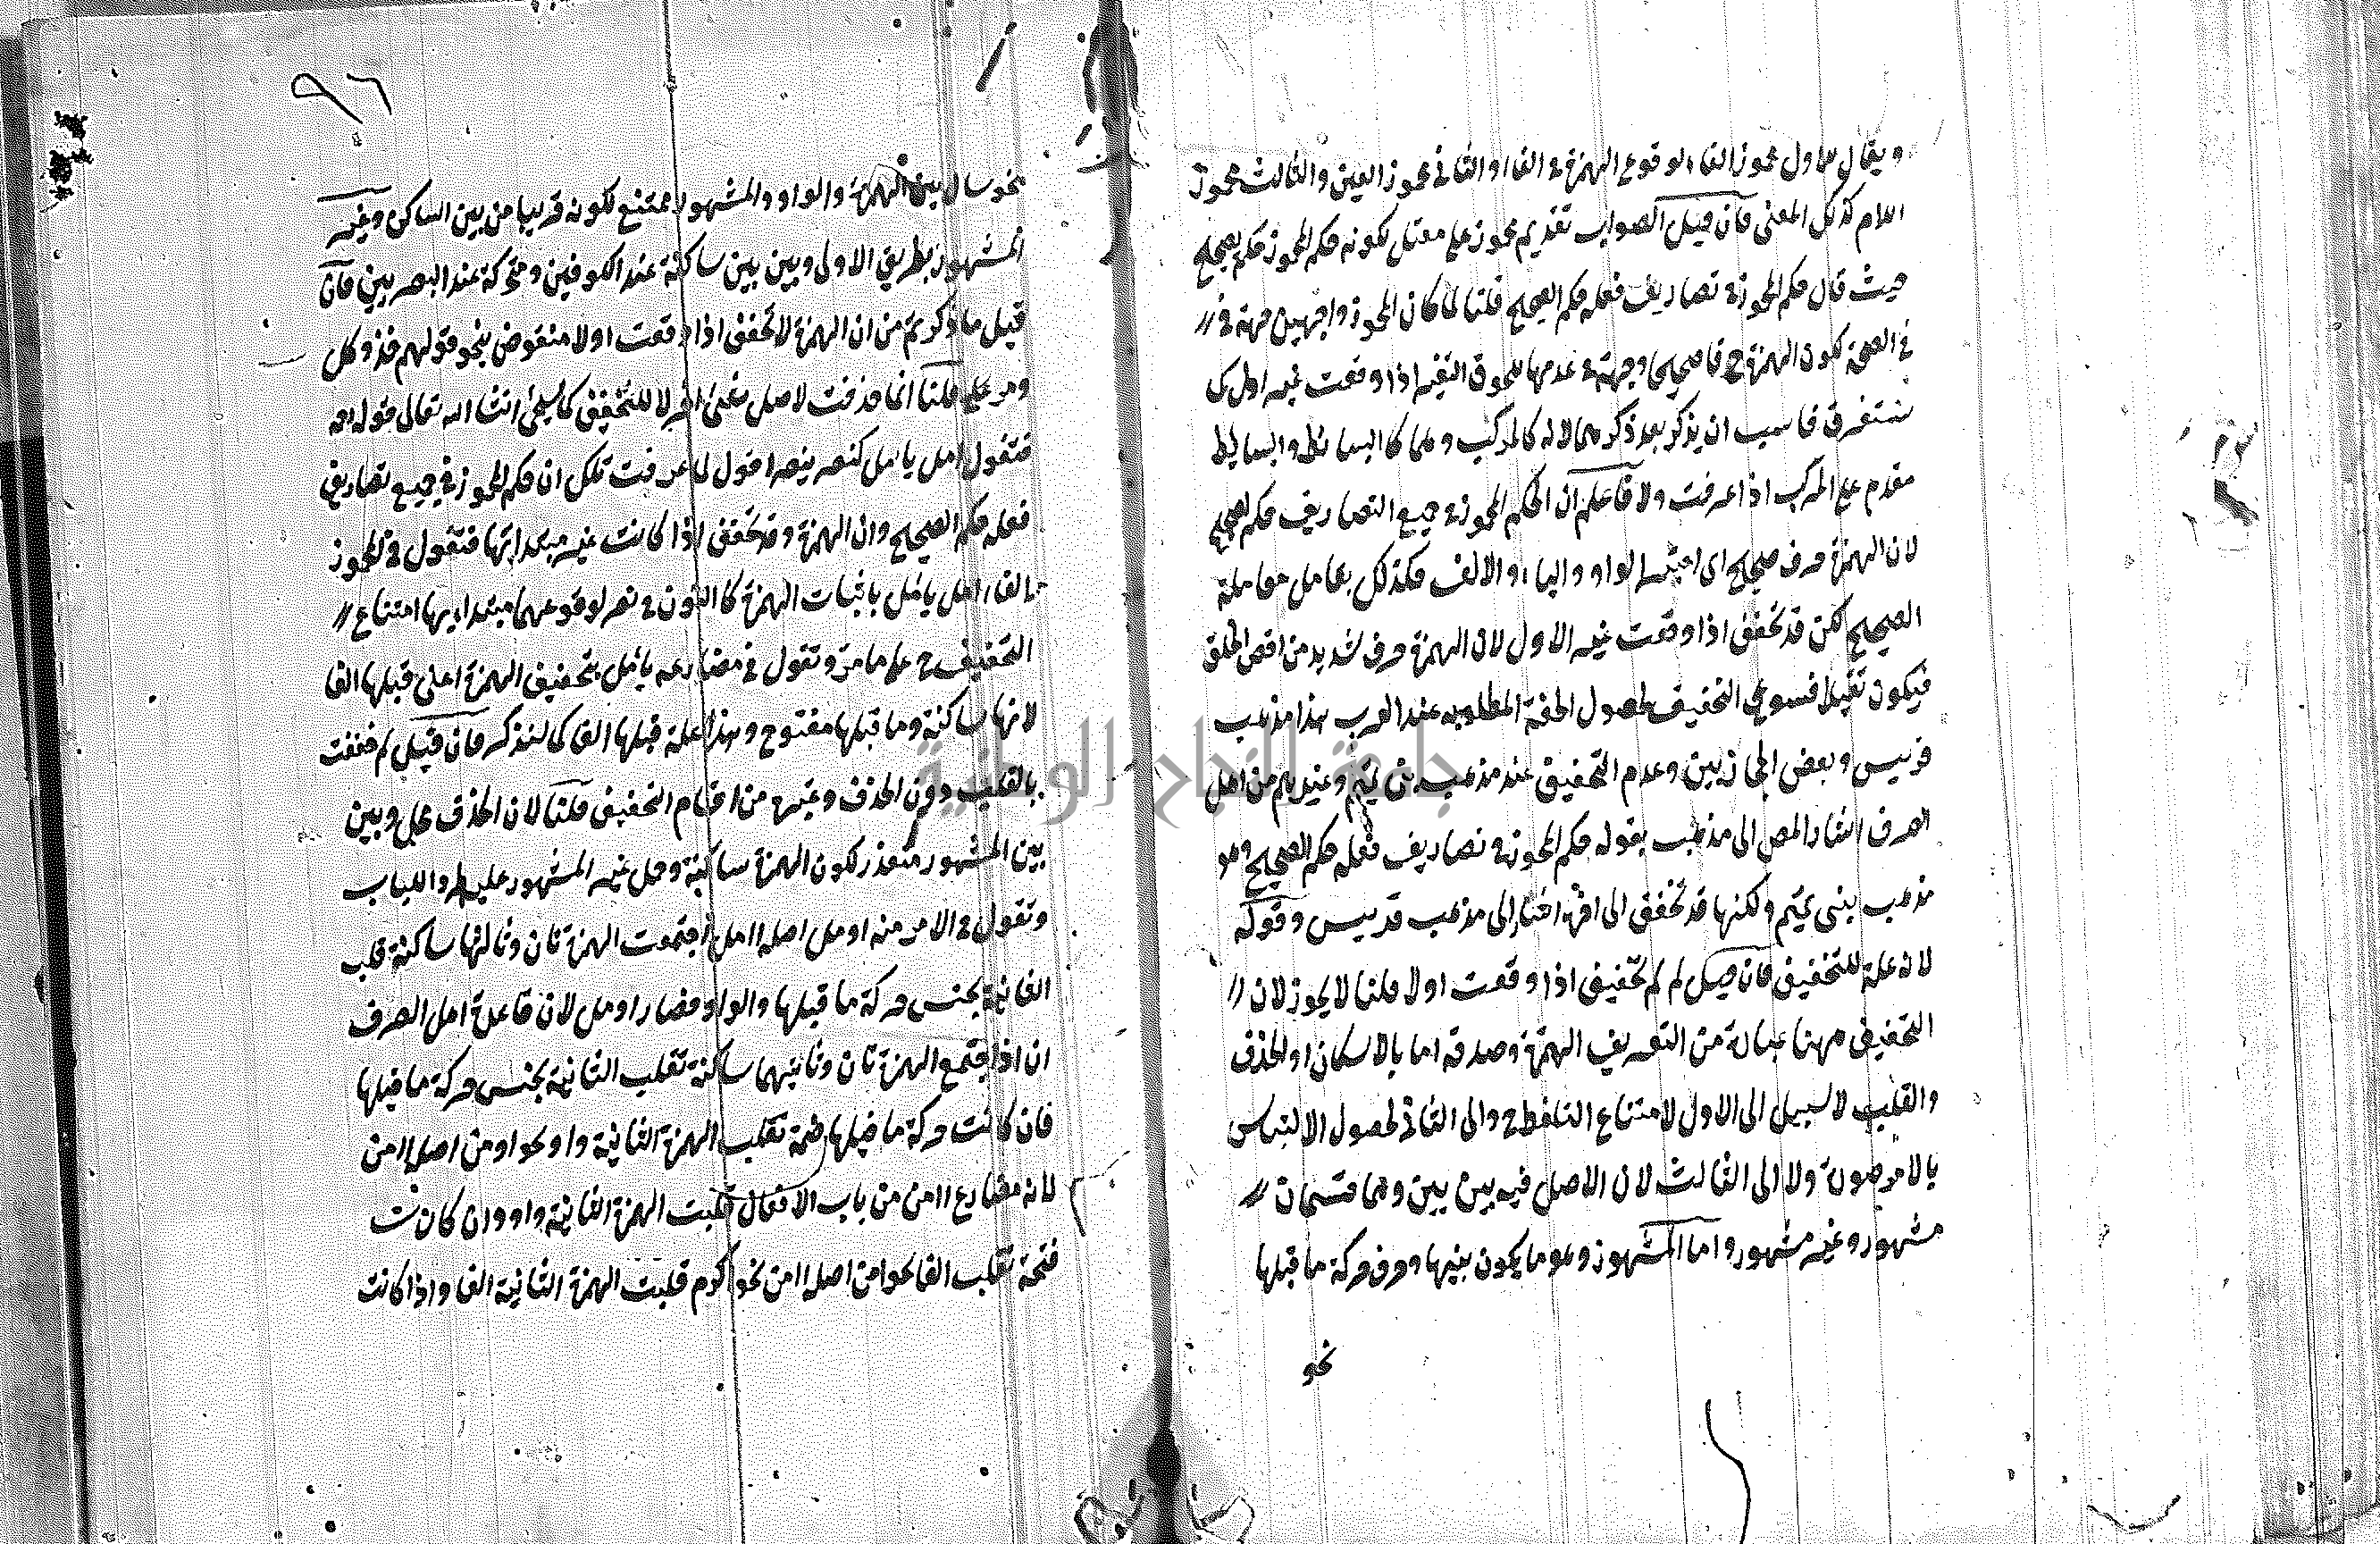 ويقال للاول مهموز الفاء لوقوع الهمزة في الفاء والثاني مهموز العين والثالث مهموز
اللام كذلك المعنى فان قيل الصواب تقديم مهموز على معتل لكونه حكم المهموز حكم الصحيح
حيث قال حكم المهموز في تصاريف فعله حكم الصحيح قلنا لما كان المهموز واجهين جهة في //
في الصحة لكون الهمزة حرفا صحيحا وجهة في عدمها للحوق التغير اذا وقعت غير اول
فناسب ان يذكر بعد ذكرهما لانه كالمركب وهما كالبسائط والبسايط
مقدم على المركب اذا عرفت ولا فاعلم ان الحكم المهموز في جميع التصاريف حكم الصحيح
لان الهمزة حرف صحيح اى الواو والياء والالف فكذلك يعامل معاملة
الصحيح لكن قد تخفف اذا وقعت غير الاول لان الهمزة حرف شديد من اقصى الحلق
فيكون ثقيلا فسوغ التخفيف لحصول الخفة المطلوبة عند العرب هذا مذهب
قريس وبعض الحجازيين وعدم التخفيف عند مذهب بنى تميم وغيرهم من اهل
الصرف اشار المص الى مذهب بقوله حكم المهموز في تصاريف فعله حكم الصحيح وهو
مذهب بنى تميم ولكنها قد تخفف الى اخره اشار الى مذهب قريس وقوله
لانه علة للتخفيف فان قيل لم لم تخفيف اذا وقعت اولا قلنا لا يجوز لان //
التخفيف ههنا عبارة من التعريف الهمزة وصدقه اما بالاسكان او الحذف
والقلب لا سبيل الى الاول لامتناع التلفظ ح والى الثاني لحصول الالتباس
بالامر صونه ولا الى الثالث لان الاصل فيه بين بين وهما قسمان //
مشهور وغير مشهور واما المشهور وهو ما يكون بينها وحرف حركة ما قبلها
نحو
٩٦
نحو سال بين الهمزة والواو والمشهور ممتنع لكونه قريبا من بين الساكن وغير
المشهور بطريق الاولى وبين بين ساكنة عند الكوفين ومتحركة عند البصريين فان
قيل ما ذكرتم من ان الهمزة لا تخفف اذا وقعت اولا منقوض بنحو قولهم خذ وكل
ومر على قلنا انما حذفت لاصل لا للتخفيف كما سيجئ انشا الله تعالى قوله
فتقول امل يامل كنصر ينصر اقول لما عرفت تلك ان حكم المهموز في جميع تصاريف
فعله حكم الصحيح وان الهمزة وقد تخفف اذا كانت غير مبتدا بها فتقول في المهموز
الفاء امل يامل باثبات الهمزة كالنون في نصر لوقوعهما مبتداء بها امتناع //
التخفيف ح على ما مر وتقول في مضارعه يامل بتخفيف الهمزة اعنى قبلها الفا
لانها ساكنة وما قبلها مفتوح وهذا علة قبلها الفا كما لنذكر فان قيل لم خففت
بالقلب دون الحذف وغيره من اقسام التخفيف قلنا لان الحذف مخل وبين
بين المشهور متعذر لكون الهمزة ساكنة وحمل غير المشهور عليه والباب
وتقول في الامر منه اومل اصله اامل اجتمعت الهمزة تان وثالثها ساكنة قلب
الثانية بجنس حركة ما قبلها والواو فصار اومل لان قاعدة اهل الصرف
ان اذا اجتمع الهمزة تان وثانيهما ساكنة تقلب الثانية بجنس حركة ما قبلها
فان كانت حركة ما قبلها ضمة تقلب الهمزة الثانية واو نحو اومن اصله اامن
لانه مضارع اامن من باب الافعال قلبت الهمزة الثانية واو وان كانت
فتحة تقلب الفا نحو امن اصله اامن نحو اكرم قلبت الهمزة الثانية الفا واذا كانت
جامعة النجاح الوطنية